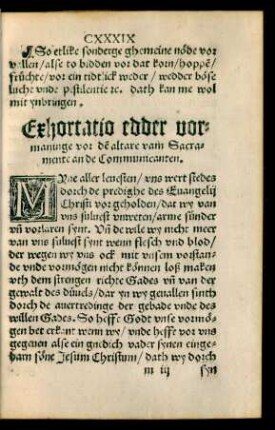 CXXXIX
So etlike sonderge ghemeine nöde vor
vellen / alse to bidden vor dat korn / hoppē /
früchte / vor ein tidtlick weder / wedder böse
lucht vnde pestilentie ꝛc. dath kan me wol
mit ynbringen.
Exhortatio edder vor-
maninge vor dē altare vam Sacra-
mente an de Communicanten.
MYne aller leuesten / vns wert stedes
dorch de predighe des Euangelij
Christi vor geholden / dat wy van
vns süluest vnweten / arme sünder
vñ vorlaren synt. Vñ de wile wy nicht meer
van vns süluest synt wenn flesch vnd blod /
der wegen wy vns ock mit vnsem vorstan-
de vnde vormögen nicht können loß maken
vth dem strengen richte Gades vñ van der
gewalt des düuels / dar yn wy geuallen sinth
dorch de auertredinge der gebade vnde des
willen Gades. So hefft Godt vnse vormö-
gen bet erkant wenn wy / vnde hefft vor vns
gegeuen alse ein gnedich vader synen einge-
barn söne Jesum Christum / dath wy dorch
m iij syn